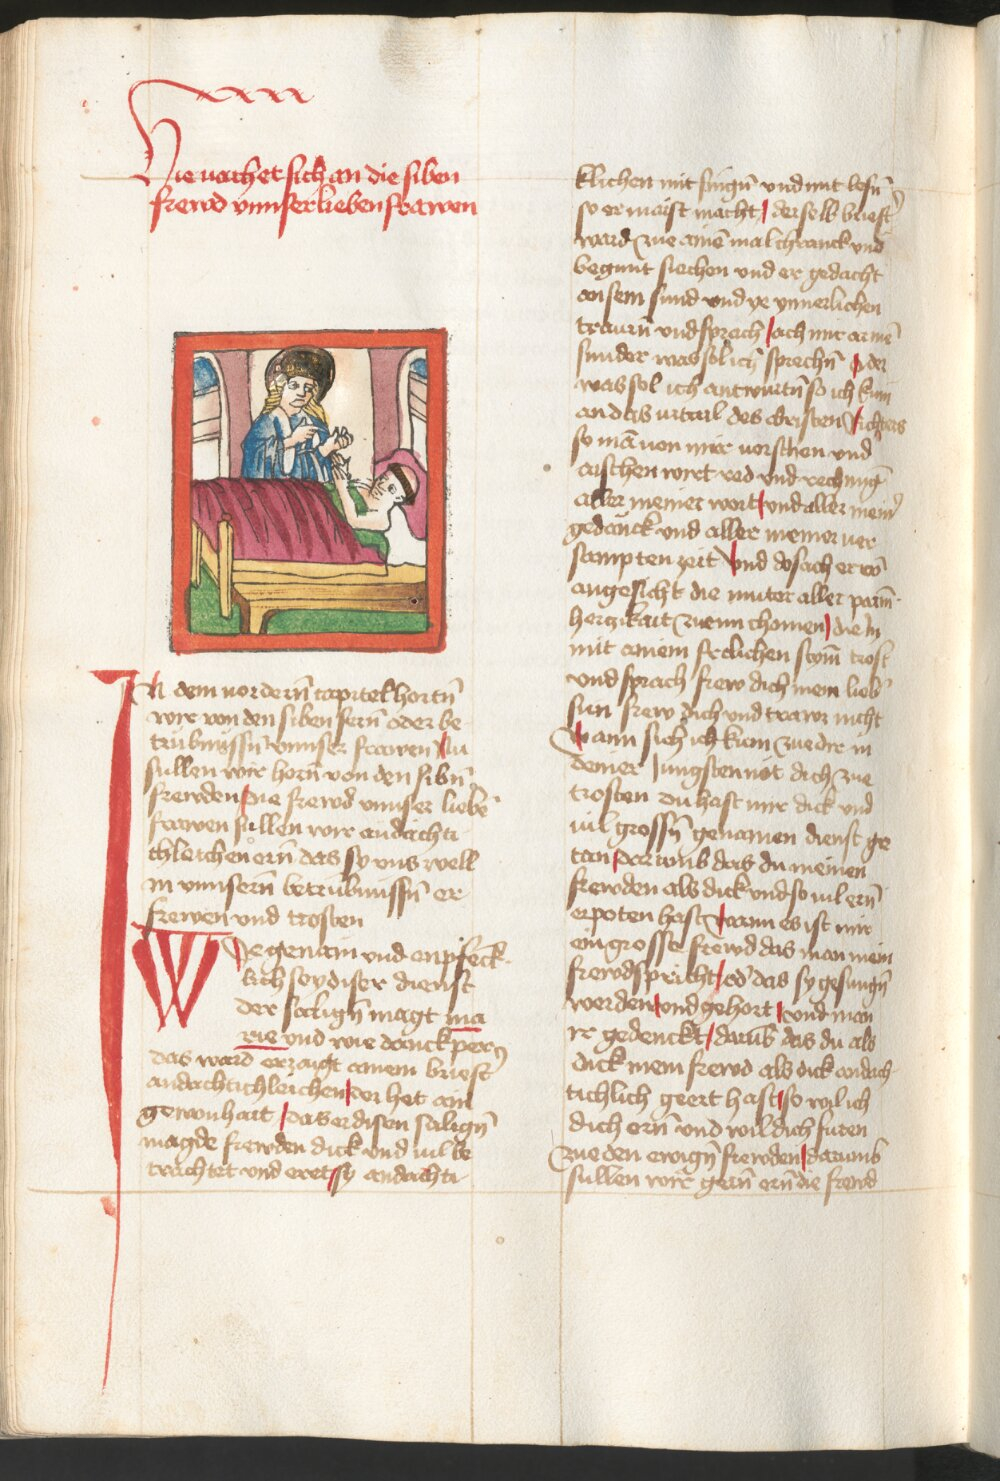 Hie vachet sich an die siben
frewd vnnser lieben frawen
In dem vordern̄ capitel hortn̄
wir von den siben sern̄ oder be-
trubnussn̄ vnnser frawen Nu
sullen wir horn̄ von den sibn̄
frewden Die frewd vnnser liebn̄
frawen sullen wir andachti
chleichen ern̄ das sy vns well
in vnnsern̄ betrubnussn̄ er-
frewen vnd trosten
Wie genam vnd enpfenck-
lich sey diser dienst
der salign̄ magt ma
rie vnd wie danckper
das ward erzaigt ainem briest̄
andachtichleichen der het ain
gewonhait das er disen salign̄
magde frewden dick vnd uil be
trachtet vnd eret sy andachti
klichen mit singn̄ vnd mit lesn̄
so er maist macht der selb briest̄
ward zue ainē mal chranck vnd
begunt siechen vnd er gedacht
an sein sund vnd ye ynnerlichen
traurn̄ vnd sprach ach mir armē
sunder was sol ich sprechn̄ oder
was sol ich antwurtn̄ so ich kum
an das vrtail des obristen Richters
so mā von mir vorschen vnd
aischen wirt red vnd rechnūg
aller meiner wort vnd aller mein̄
gedanck vnd aller meiner ver
sampten zeit Vnd do sach er vō
angesicht die muter aller parm-
hertzikait zue im chomen die in
mit ainem frolichen stym̄ trost
vnd sprach frew dich mein lieb̄
sun frew dich vnd trawr nicht
Wann sich ich kum zue dir in
deiner Jungsten not dich zue
trosten du hast mir dick vnd
uil grossn̄ genamen dienst ge
tan darumb das du meinen
frewden als dick vnd so uil ern̄
erpoten hast wann es ist mir
ein grosse frewd das man mein
frewd spricht od̄ das sy gesungn̄
werden vnd gehort vnd man
ir gedenckt darūb das du als
dick mein frewd als dick andach-
tichlich geert hast so wil ich
dich ern̄ vnd wil dich furen
zue den ewign̄ frewden darumb
sullen wir gern̄ ern̄ die frewd